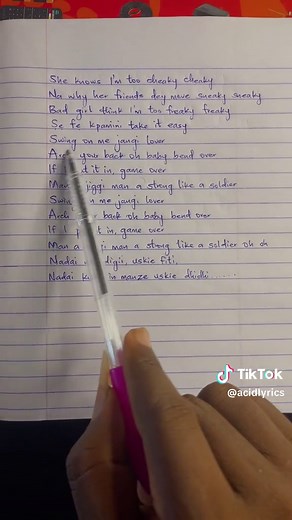 She knows I'm too cheeky cheeky
Na why her friends dey move sneaky sneaky
Bad girl think I'm too freaky freaky
Se fe kpamini take it easy
Swing on me jangi lover
your back oh baby bend over
If it in, game over
man a strong like a soldier
on me jangi lover
back oh baby bend over
If I it in, game over
Man a man a strong like a soldier oh oh
Nadai digii, uskie fiti,
Nadai manze uskie dhidhi .....
TikTok
@acidlyrics